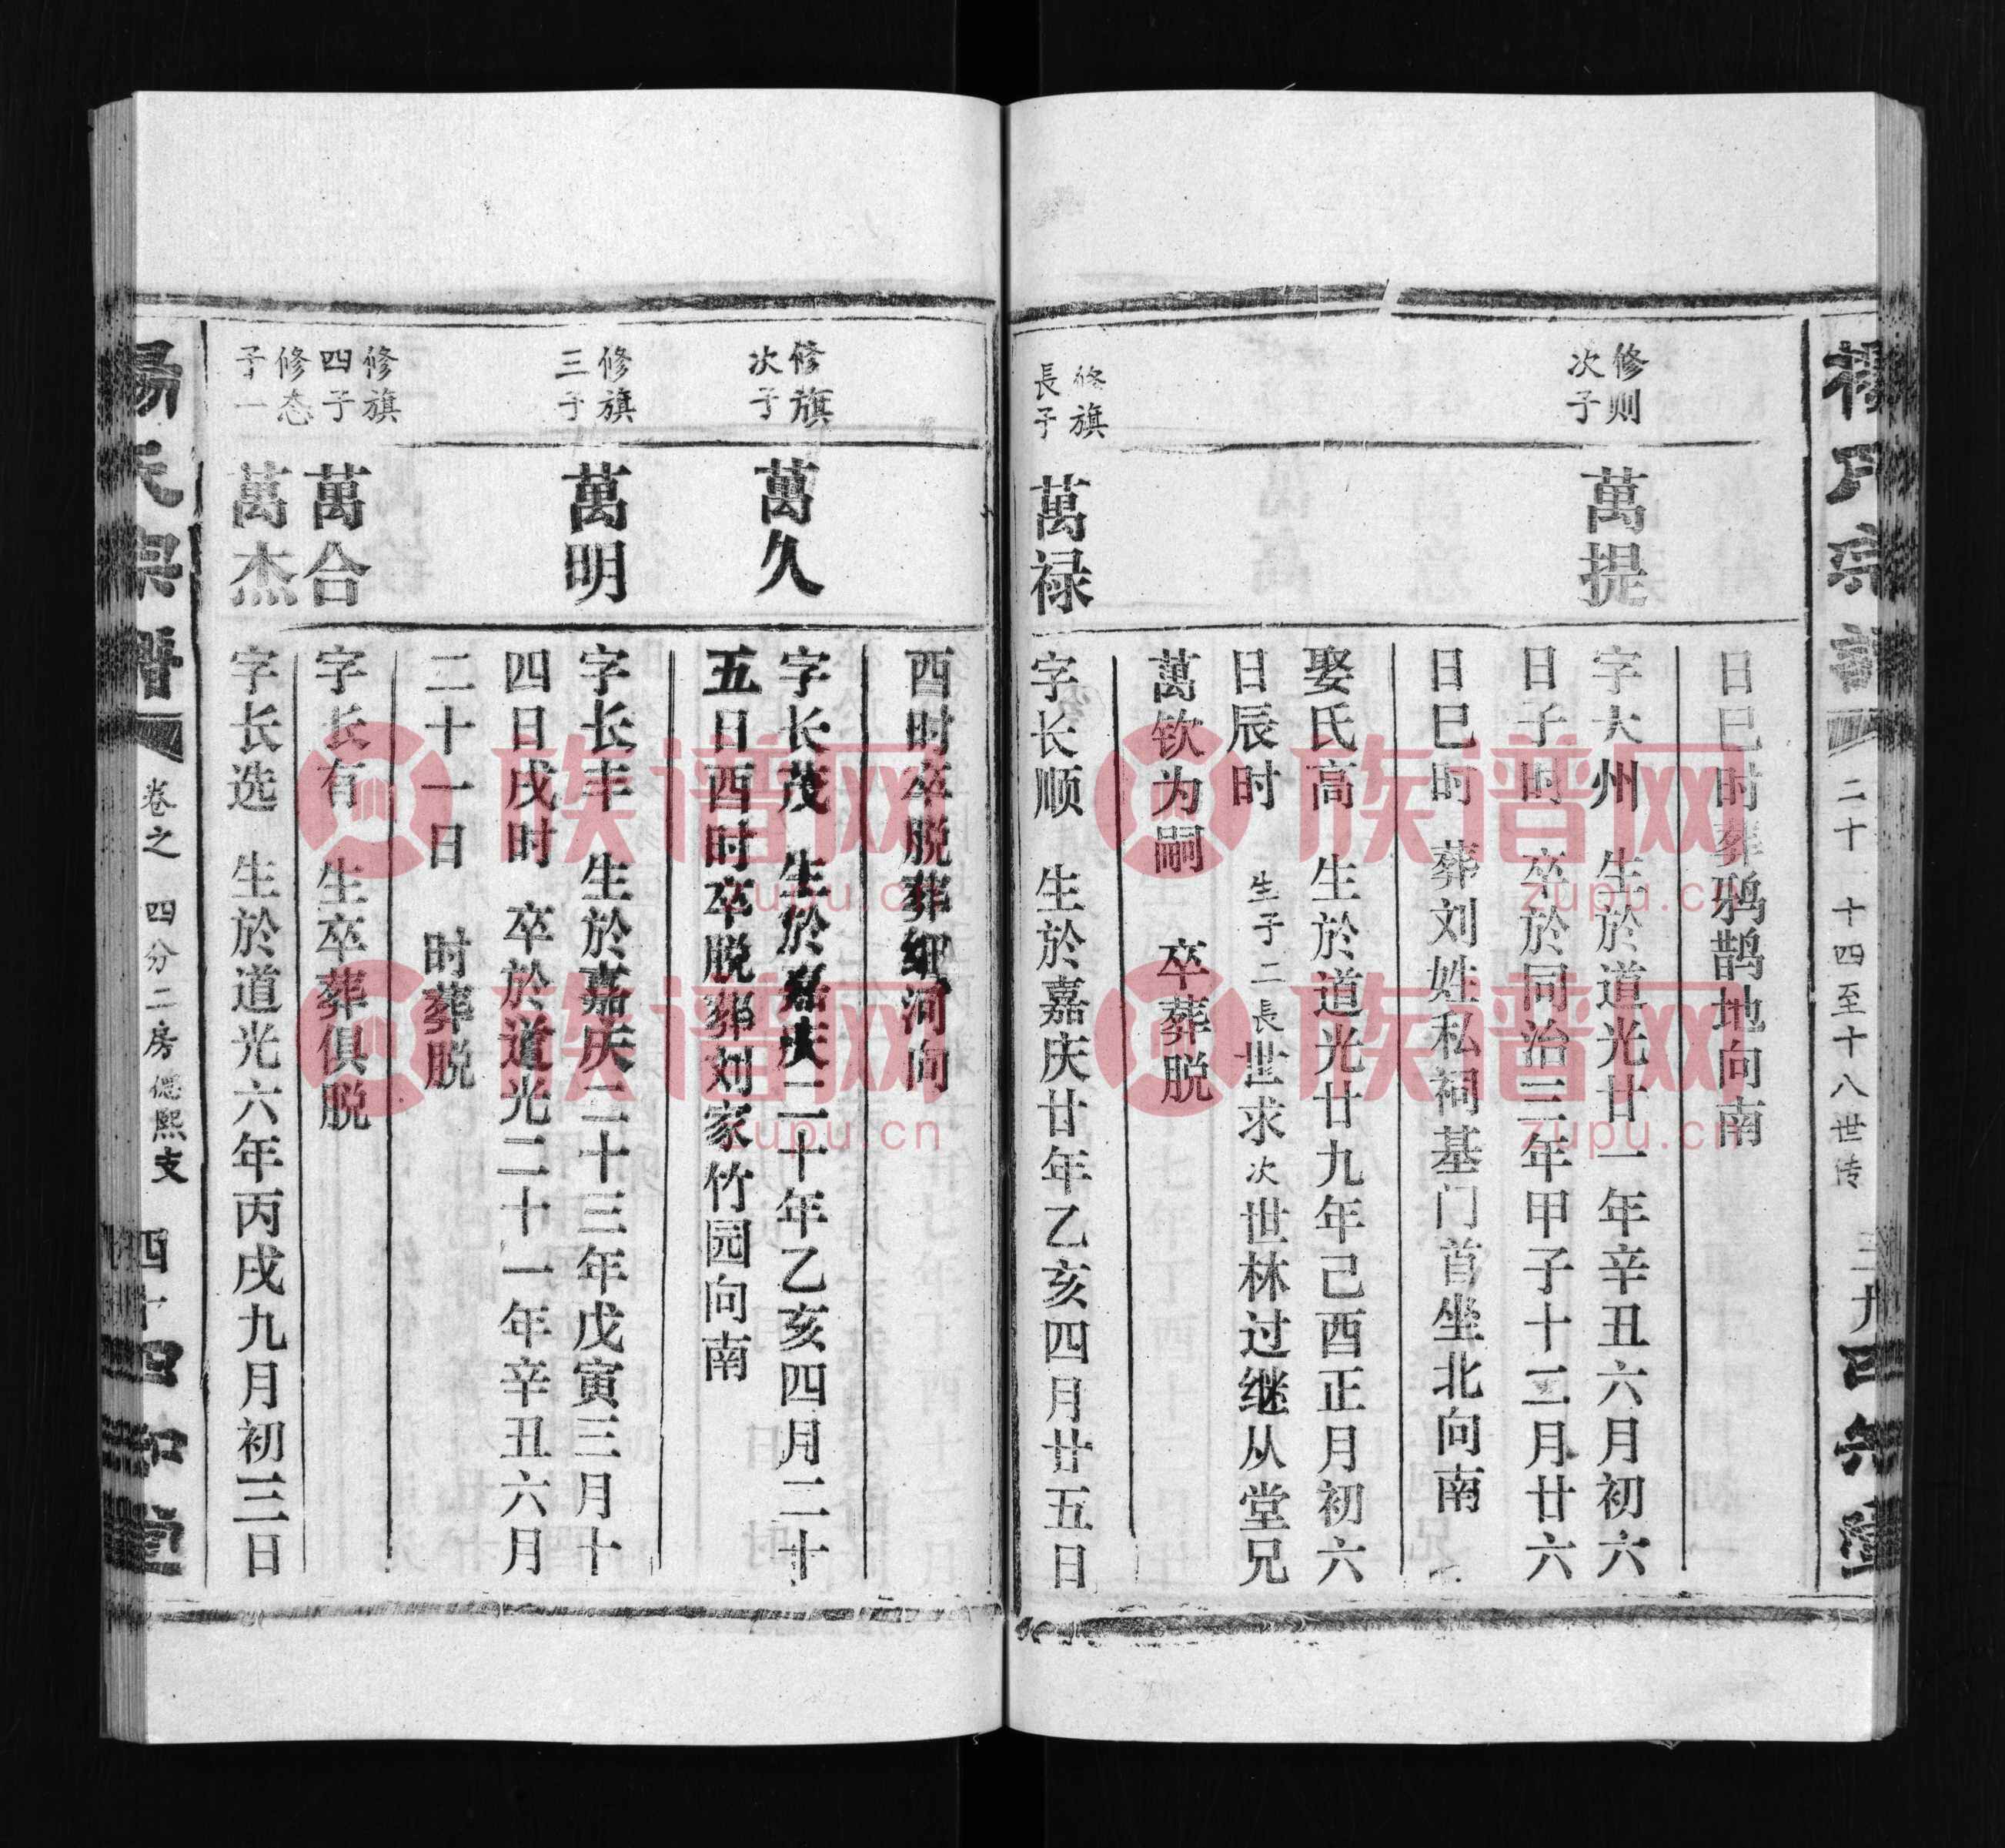 楊氏宗譜
二十 十四至十八世传 三九
四知堂
日巳时葬鸦鹊地向南
修则
次子
萬提
字大州 生於道光廿一年辛丑六月初六
日子时 卒於同治三年甲子十二月廿六
日巳时 葬刘姓私祠基门首坐北向南
娶氏高 生於道光廿九年己酉正月初六
日辰时 生子二長世求次世林过继从堂兄
萬钦为嗣 卒葬脱
修旗
長子
萬禄
字长顺 生於嘉庆廿年乙亥四月廿五日
酉时卒脱葬细河向
修旗
次子
萬久
字长茂 生於嘉庆二十年乙亥四月二十
五日酉时卒脱葬刘家竹园向南
修旗
三子
萬明
字长丰 生於嘉庆二十三年戊寅三月十
四日戌时 卒於道光二十一年辛丑六月
二十一日 时葬脱
修旗
四子
萬合
字长有 生卒葬俱脱
修态
子一
萬杰
字长选 生於道光六年丙戌九月初三日
楊氏宗譜
卷之 四分二房德熙支 四十
四知堂
族谱网
zupu.cn
族谱网
zupu.cn
族谱网
zupu.cn
族谱网
zupu.cn